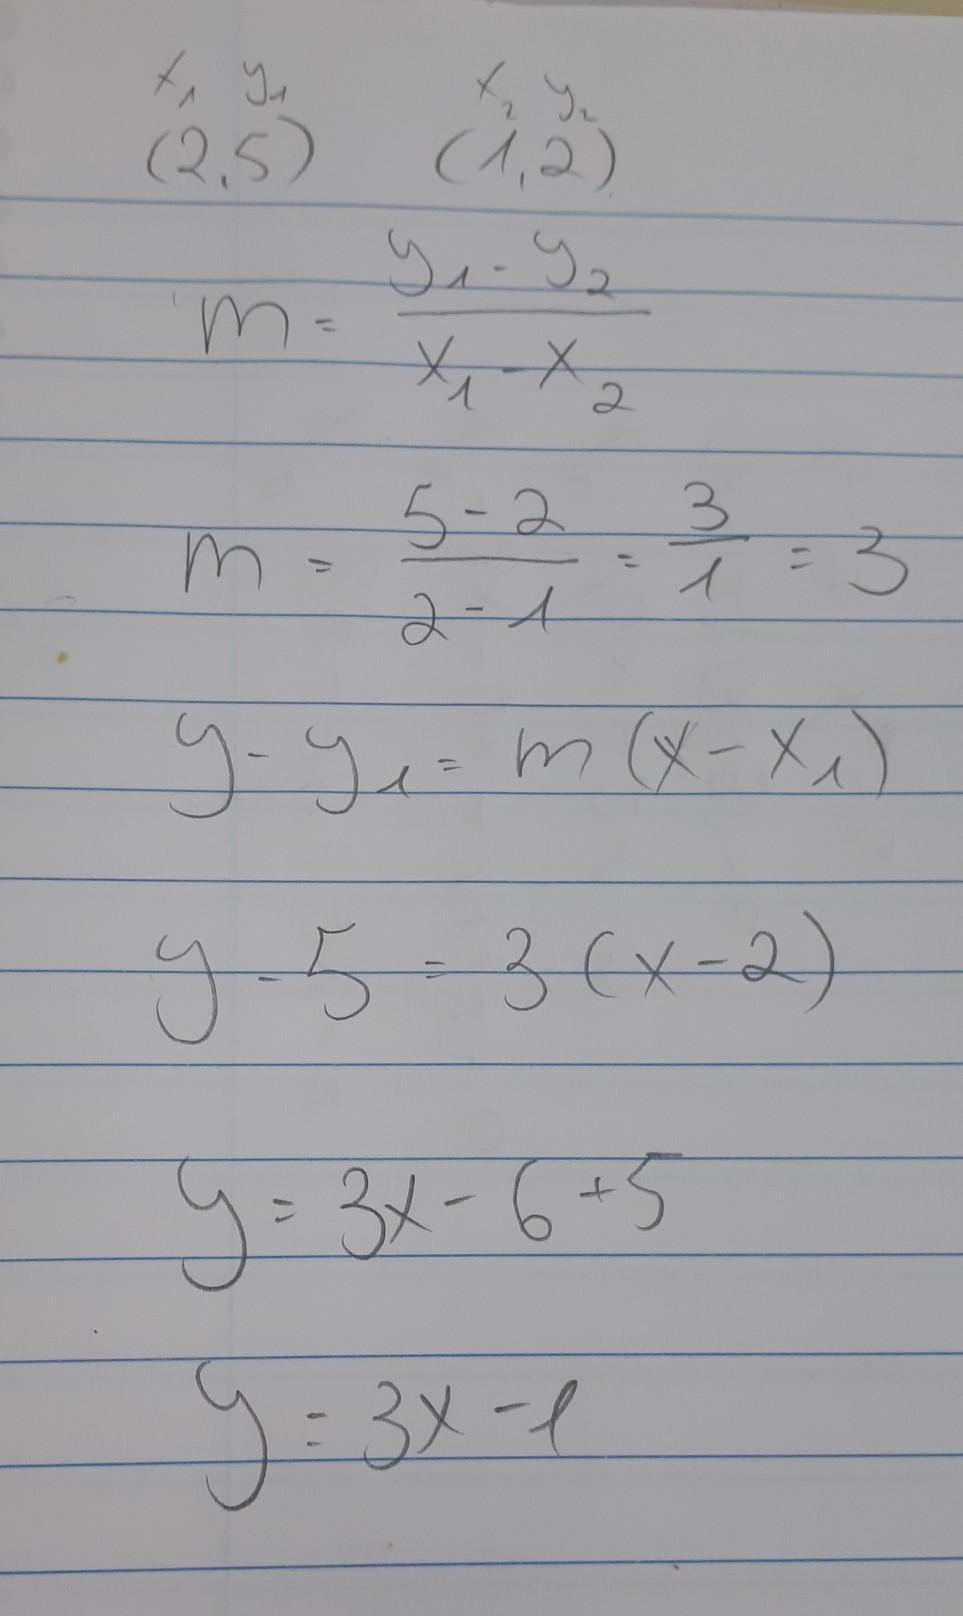 x₁ y₁ x₂ y₂
(2,5) (1,2)
m = (y₁ - y₂)/(x₁ - x₂)
m = (5 - 2)/(2 - 1) = 3/1 = 3
y - y₁ = m (x - x₁)
y - 5 = 3 (x - 2)
y = 3x - 6 + 5
y = 3x - 1